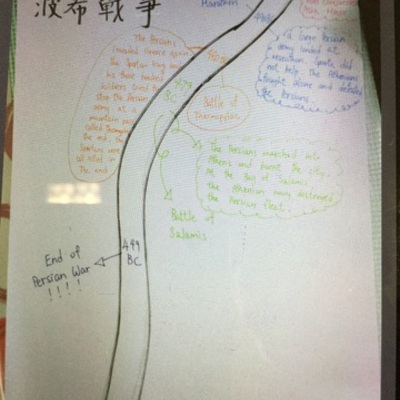 波希戰爭
Marathon
a large Persian
army landed at
Marathon. Sparta did
not help, the Athenians
fought alone and defeated
the Persians.
The Persians
invaded Greece again
the Spartan King and
his three hundred
soldiers tried to
stop the Persian
army at a
mountain pass
called
the end, the
Spartans were
all killed in
the end
479
BC
Battle of
Thermopylae
The Persians marched into
Athens and burnt the city.
At the Bay of Salamis,
the Athenian navy destroyed
the Persian fleet.
Battle of
Salamis
449
BC
End of
Persian War
! ! ! !